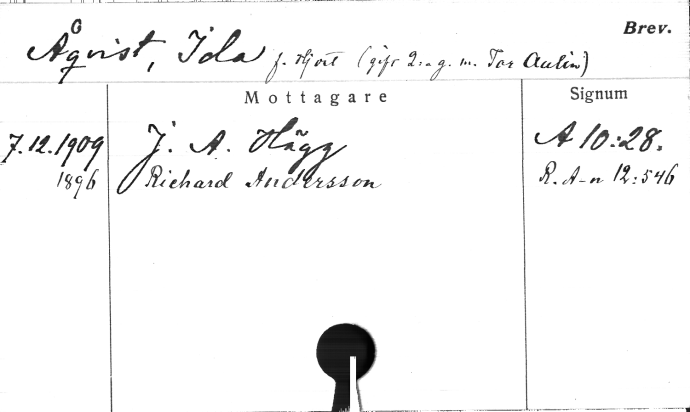 Brev.
Åqvist, Ida f. Hjort (gift 2:a g. m. Tor Aulin)
Mottagare
Signum
7.12.1909 J. A. Hägg A 10:28.
1896 Richard Andersson R. A-n 12:546